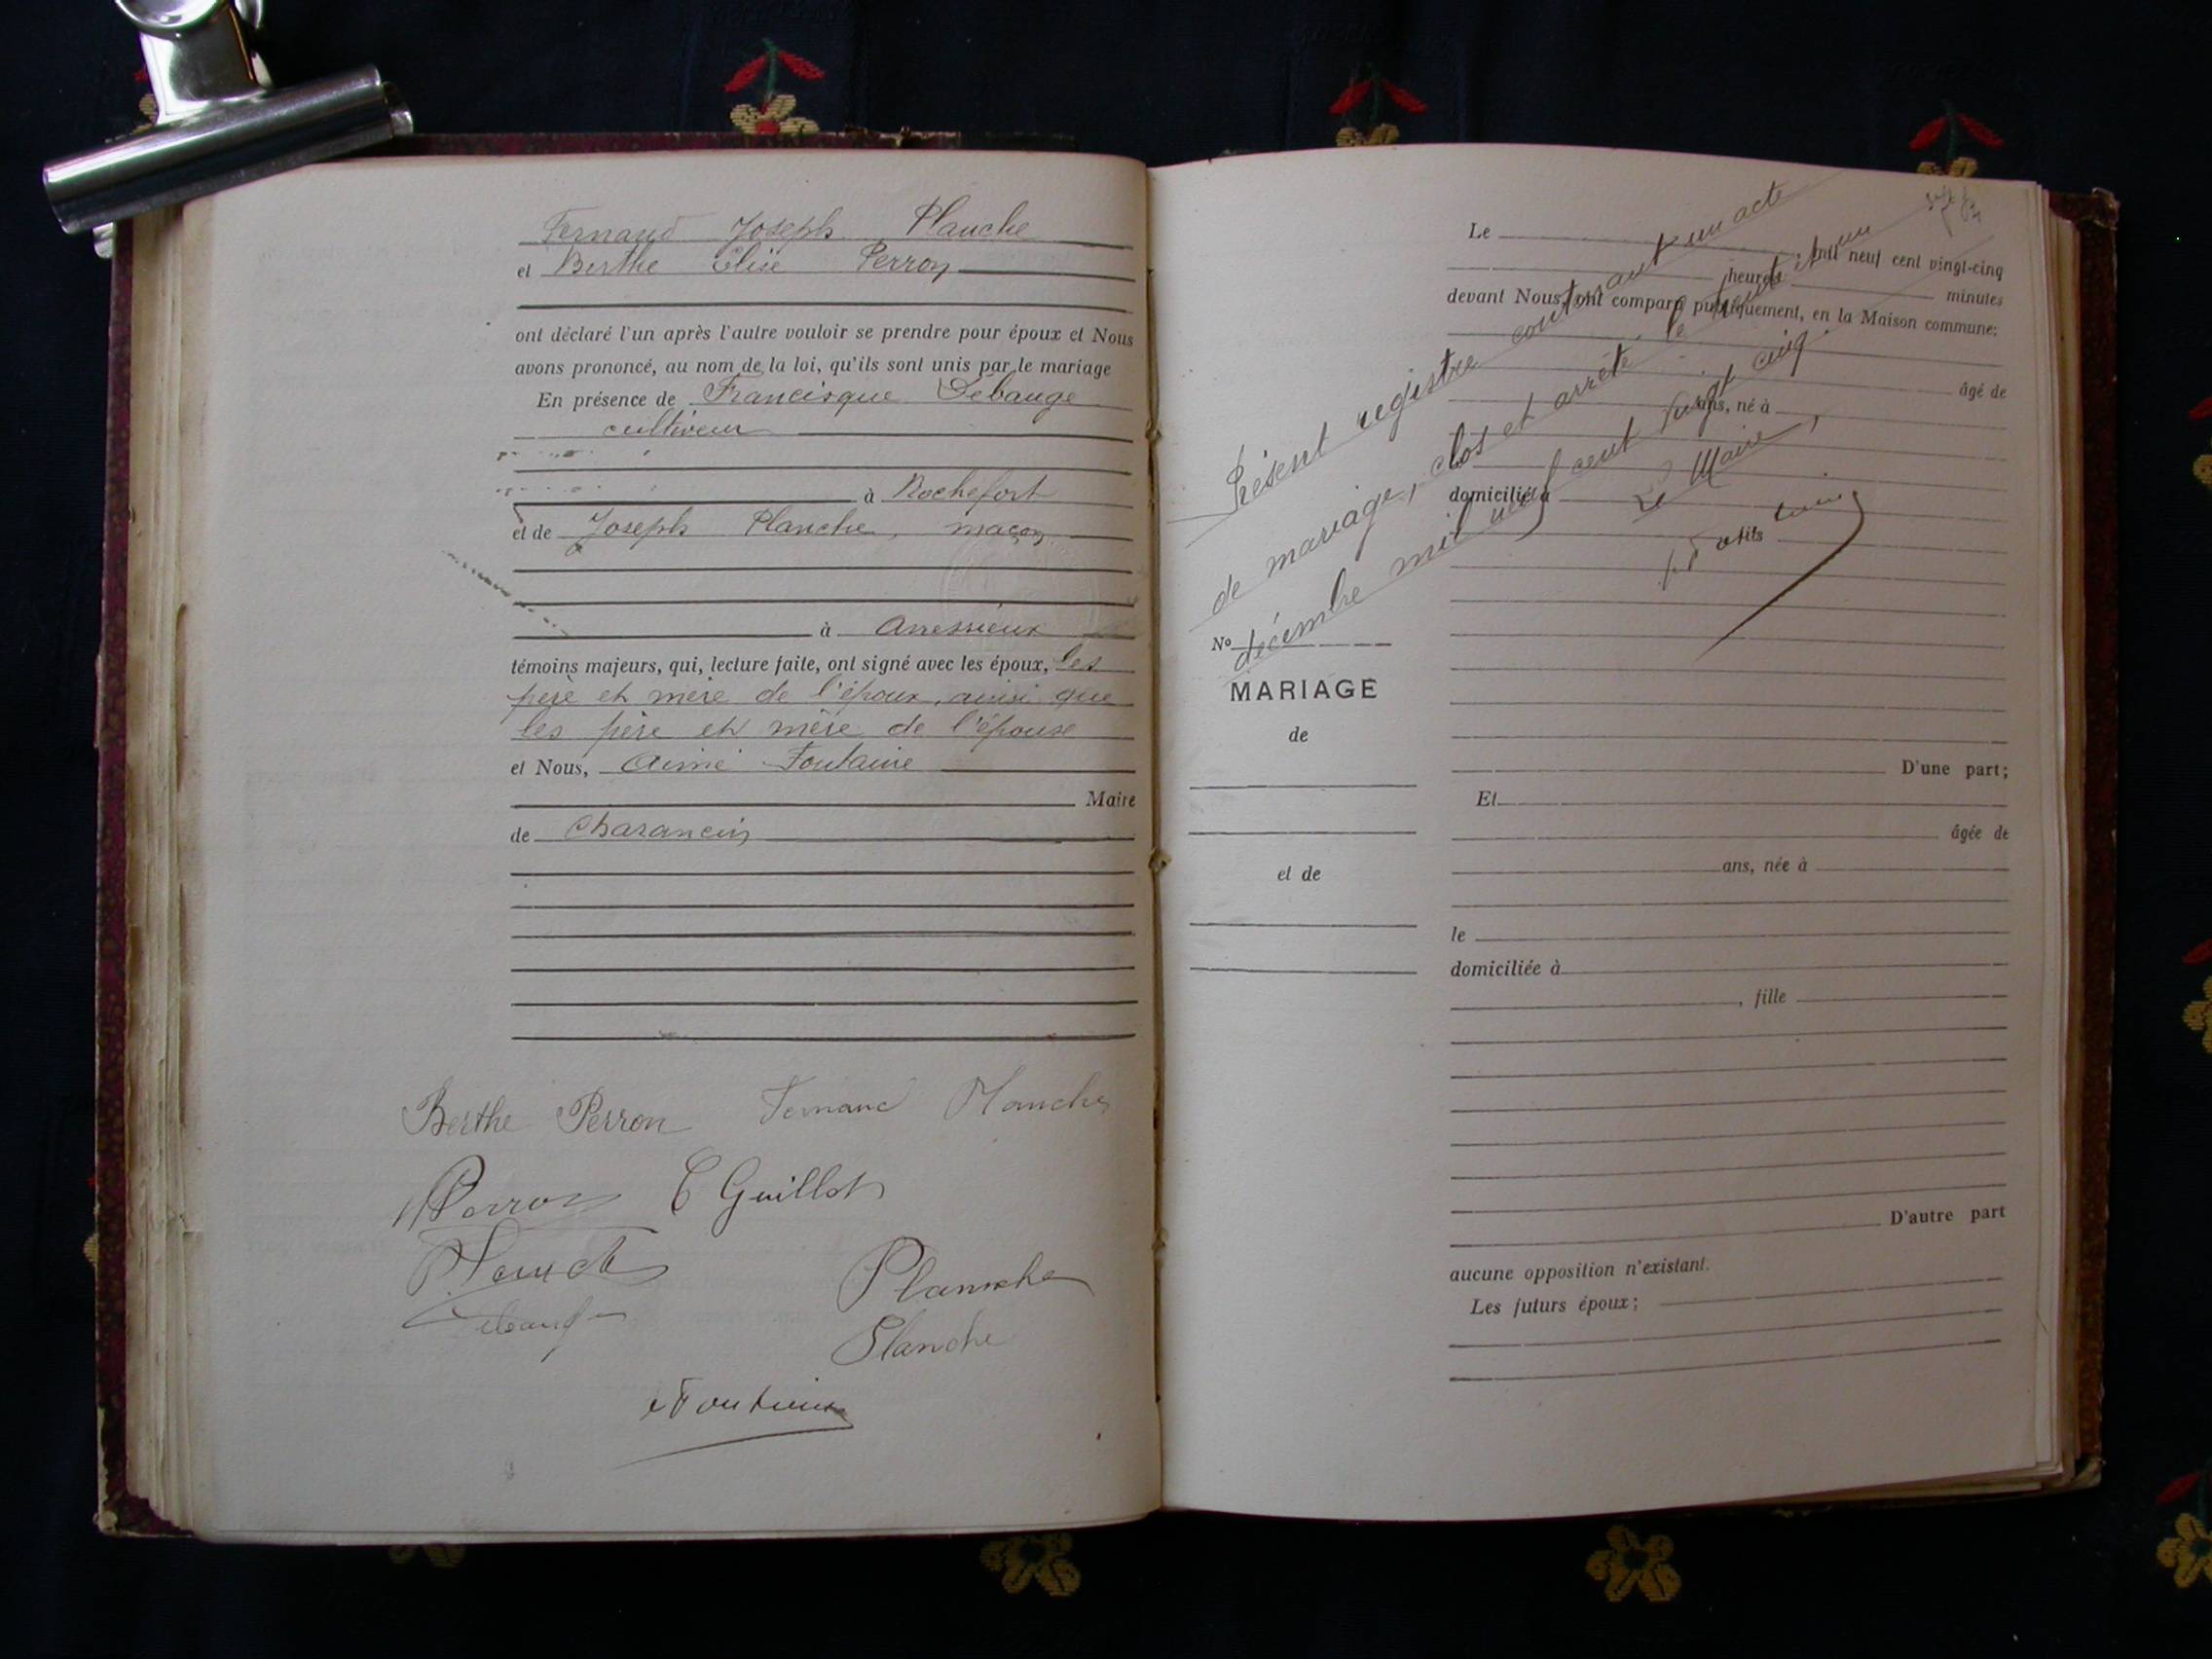 Fernand Joseph Planche
et Berthe Elise Perron
ont déclaré l'un après l'autre vouloir se prendre pour époux et Nous
avons prononcé, au nom de la loi, qu'ils sont unis par le mariage
En présence de Francisque Debauge
cultiveur
à Rochefort
et de Joseph Planche, maçon
à Anessieux
témoins majeurs, qui, lecture faite, ont signé avec les époux, les
père et mère de l'époux, ainsi que
les père et mère de l'épouse
et Nous, Aimé Fontaine
Maire
de Charancin
Berthe Perron Fernand Planche
Perron C Guillot
Planche
Planche
Fontaine
Le
mil neuf cent vingt-cinq
heures minutes
devant Nous, ont comparu publiquement, en la Maison commune:
âgé de
ans, né à
domicilié à
fils
Présent registre contenant un acte
de mariage, clos et arrêté le trente et un
décembre mil neuf cent vingt cinq.
Le Maire,
No
MARIAGE
de
et de
D'une part;
Et
âgée de
ans, née à
le
domiciliée à
, fille
D'autre part
aucune opposition n'existant.
Les futurs époux;